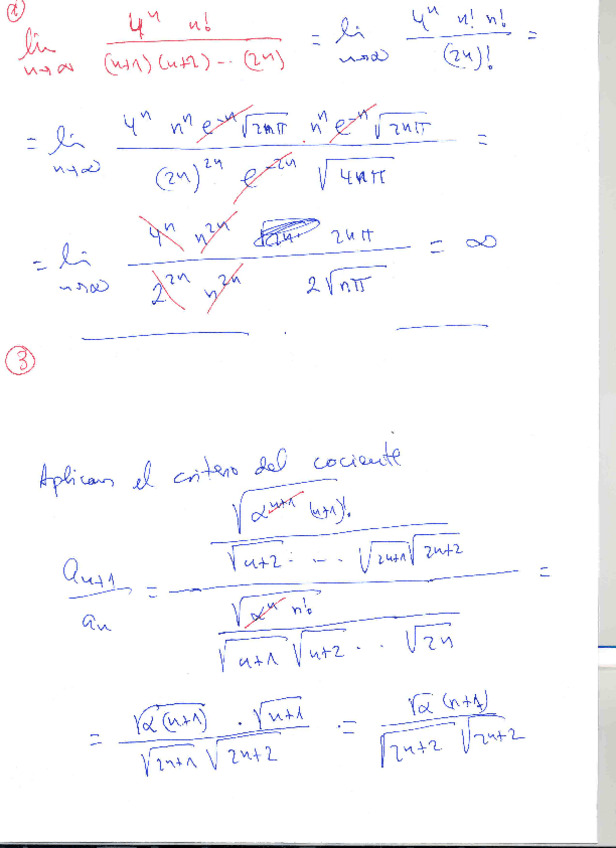 2
lim n→∞ 4^n n! / (n+1)(n+2)⋯(2n) = lim n→∞ 4^n n! n! / (2n)! =
= lim n→∞ 4^n n^n e^-n √2nπ · n^n e^-n √2nπ / (2n)^2n e^-2n √4nπ =
= lim n→∞ 4^n n^2n 2nπ / 2^2n n^2n 2√nπ = ∞
3
Aplicamos el criterio del cociente
a_n+1 / a_n = (√α^n+1 (n+1)! / √n+2 ⋯ √2n+1 √2n+2) / (√α^n n! / √n+1 √n+2 ⋯ √2n) =
= √α(n+1) · √n+1 / √2n+1 √2n+2 = √α (n+1) / √2n+2 √2n+2